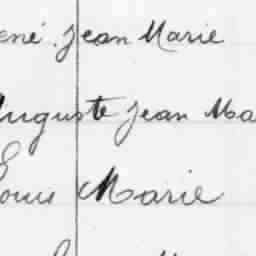 ené Jean Marie
Auguste Jean Ma
Louis Marie